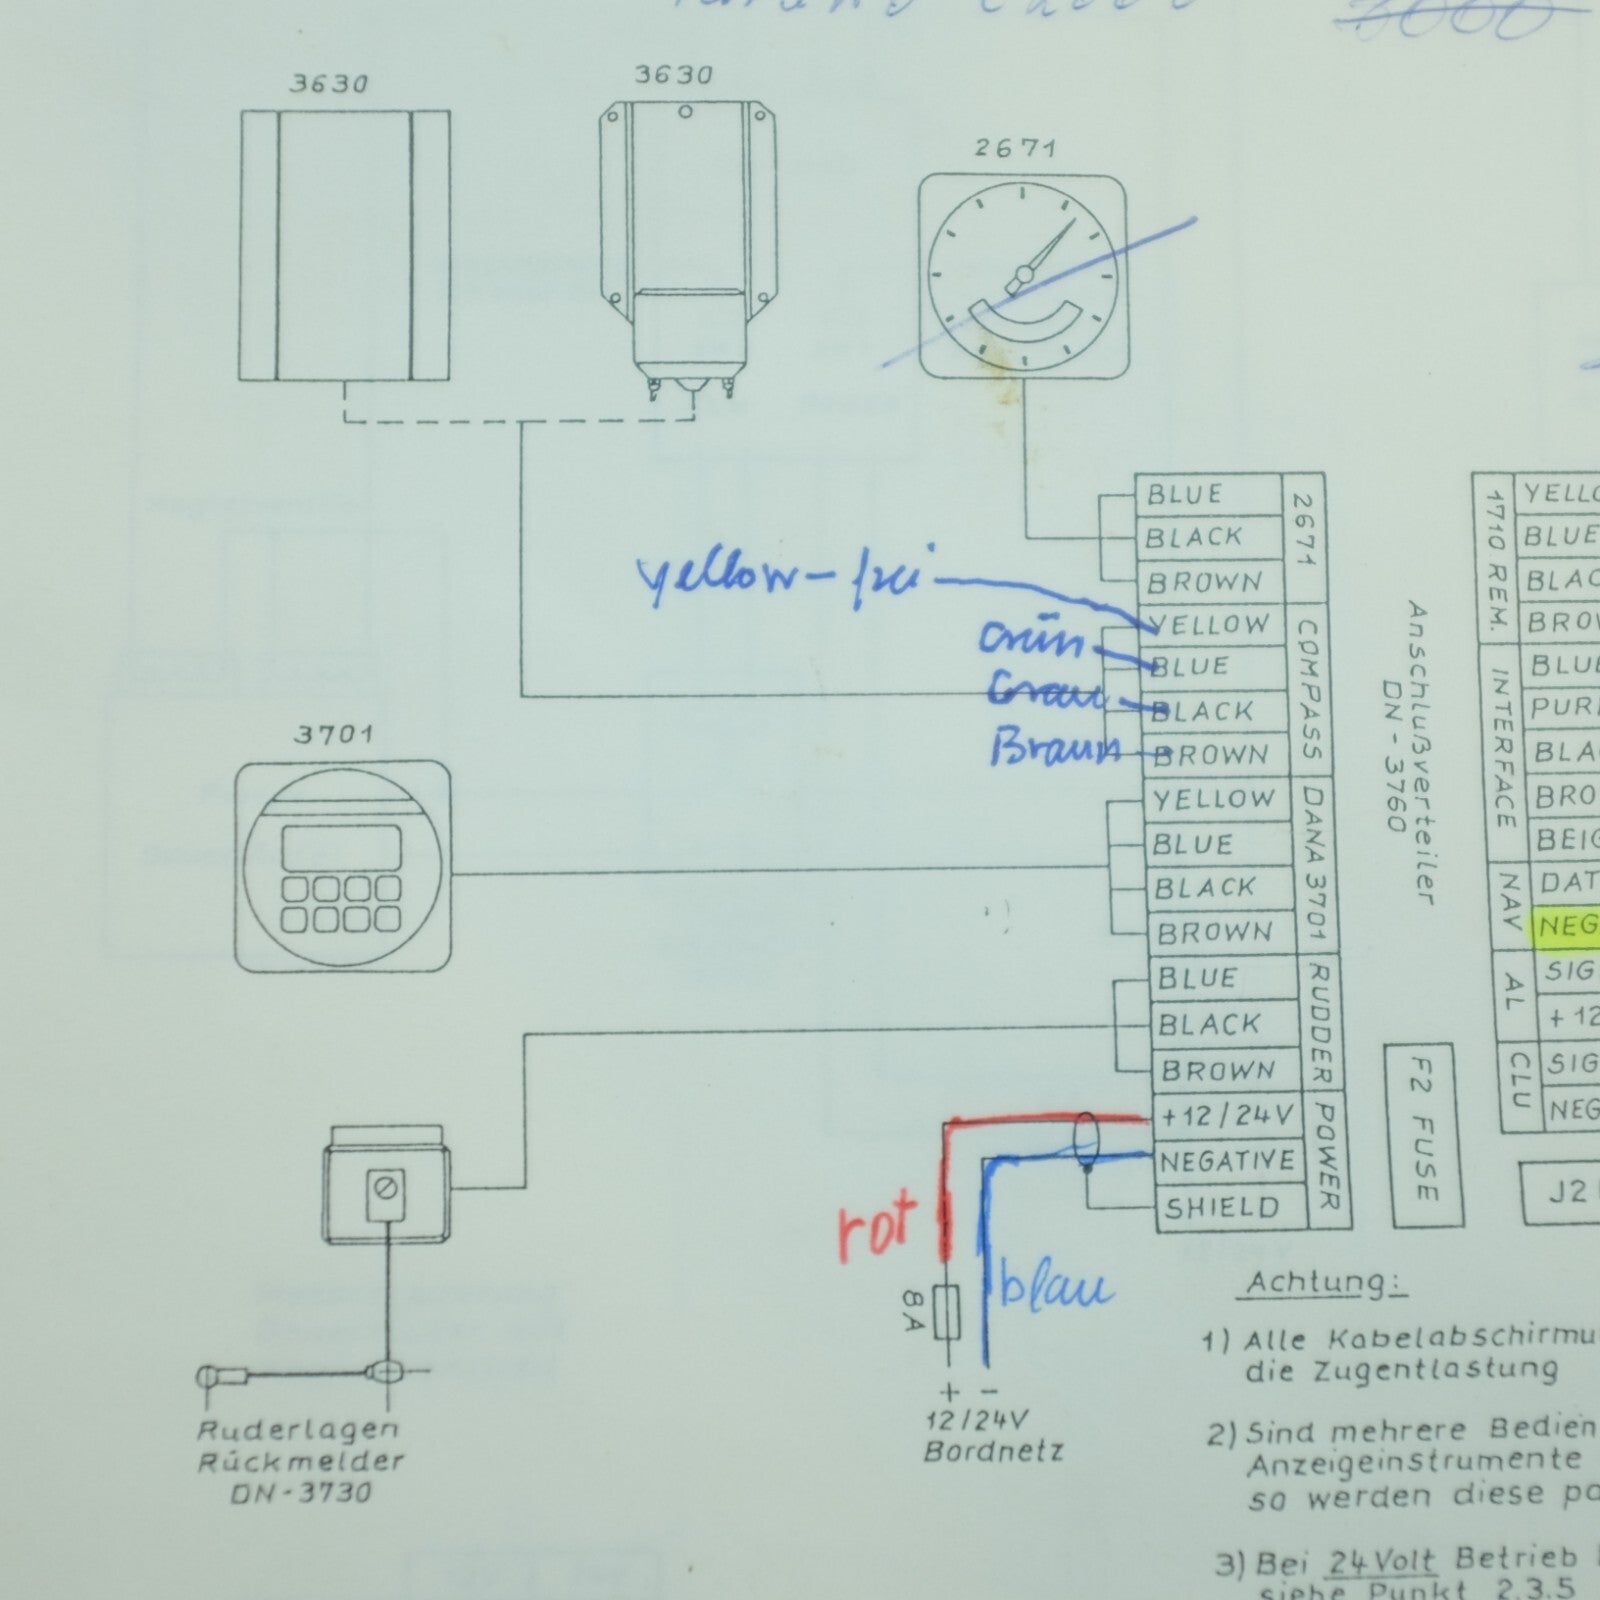 3630
3630
2671
BLUE
BLACK
BROWN
2671
yellow - frei
YELLOW
Grün
BLUE
Grau
BLACK
Braun
BROWN
COMPASS
3701
YELLOW
BLUE
BLACK
BROWN
DANA 3701
BLUE
BLACK
BROWN
RUDDER
+12/24V
NEGATIVE
SHIELD
POWER
rot
blau
8A
+ -
12/24V
Bordnetz
Ruderlagen
Rückmelder
DN-3730
Anschlußverteiler
DN-3760
F2 FUSE
1710 REM.
YELLO
BLUE
BLAC
BROW
INTERFACE
BLUE
PUR
BLA
BRO
BEIG
NAV
DAT
NEG
AL
SIG
+12
CLU
SIG
NEG
J2
Achtung:
1) Alle Kabelabschirmu
die Zugentlastung
2) Sind mehrere Bedien
Anzeigeinstrumente
so werden diese pa
3) Bei 24Volt Betrieb
siehe Punkt 2.3.5